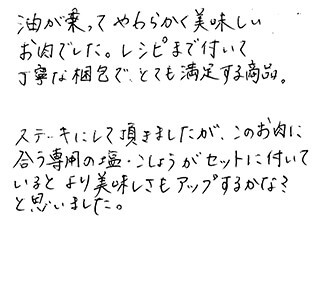 油が乗って やわらかく美味しい
お肉でした。レシピまで付いて
丁寧な梱包で、とても満足する商品。
ステーキにして頂きましたが、このお肉に
合う専用の塩・こしょうがセットに付いて
いると より美味しさもアップするかな?
と思いました。